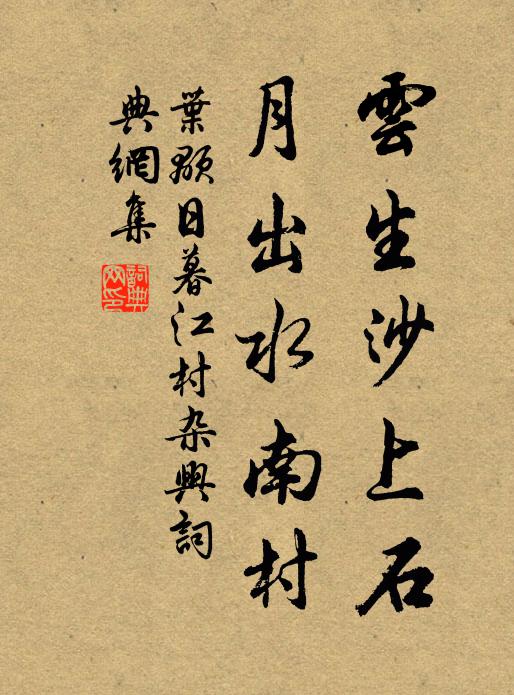 雲生沙上石
月出水南村
葉顒日暮江村杂興詞
典網集
詞典網印